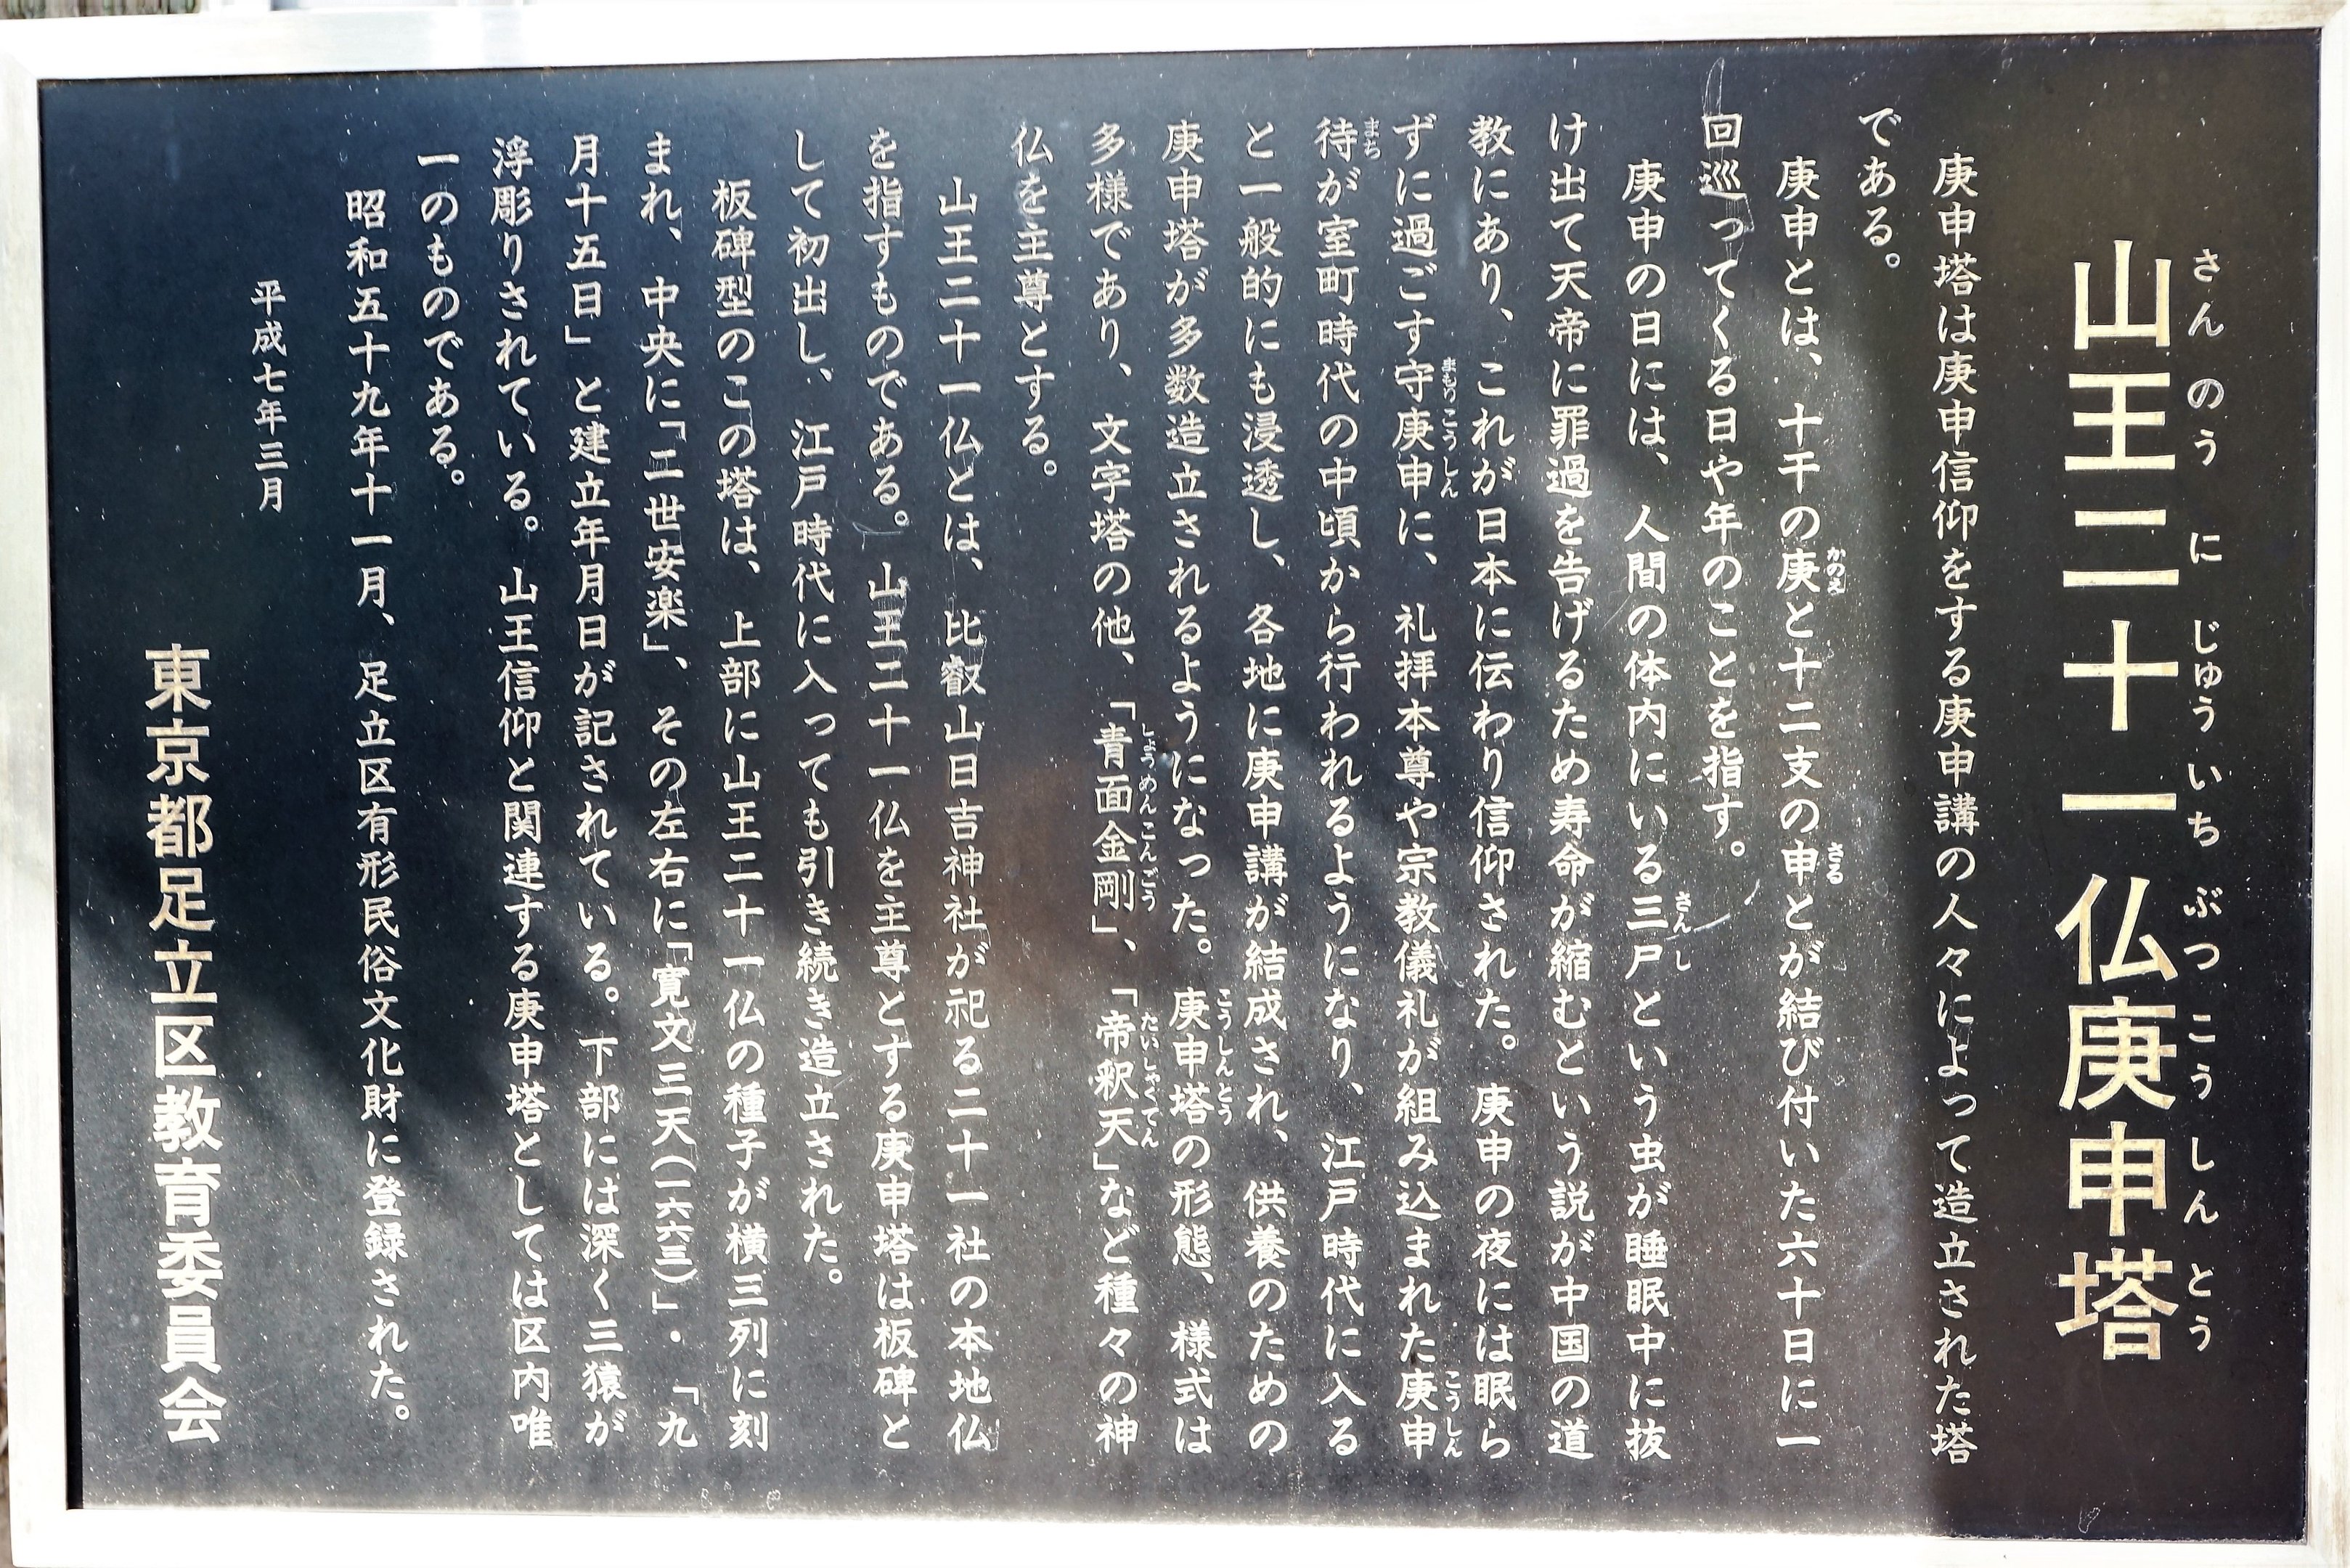 山王二十一仏庚申塔
さんのうにじゅういちぶつこうしんとう
庚申塔は庚申信仰をする庚申講の人々によって造立された塔
である。
庚申とは、十干の庚と十二支の申とが結び付いた六十日に一
かのえ
さる
回巡ってくる日や年のことを指す。
庚申の日には、人間の体内にいる三尸という虫が睡眠中に抜
さんし
け出て天帝に罪過を告げるため寿命が縮むという説が中国の道
教にあり、これが日本に伝わり信仰された。庚申の夜には眠ら
ずに過ごす守庚申に、礼拝本尊や宗教儀礼が組み込まれた庚申
まもりこうしん
こうしん
待が室町時代の中頃から行われるようになり、江戸時代に入る
まち
と一般的にも浸透し、各地に庚申講が結成され、供養のための
庚申塔が多数造立されるようになった。庚申塔の形態、様式は
こうしんとう
多様であり、文字塔の他、「青面金剛」、「帝釈天」など種々の神
しょうめんこんごう
たいしゃくてん
仏を主尊とする。
山王二十一仏とは、比叡山日吉神社が祀る二十一社の本地仏
を指すものである。山王二十一仏を主尊とする庚申塔は板碑と
して初出し、江戸時代に入っても引き続き造立された。
板碑型のこの塔は、上部に山王二十一仏の種子が横三列に刻
まれ、中央に「二世安楽」、その左右に「寛文三天(一六六三)」・「九
月十五日」と建立年月日が記されている。下部には深く三猿が
浮彫りされている。山王信仰と関連する庚申塔としては区内唯
一のものである。
昭和五十九年十一月、足立区有形民俗文化財に登録された。
平成七年三月
東京都足立区教育委員会